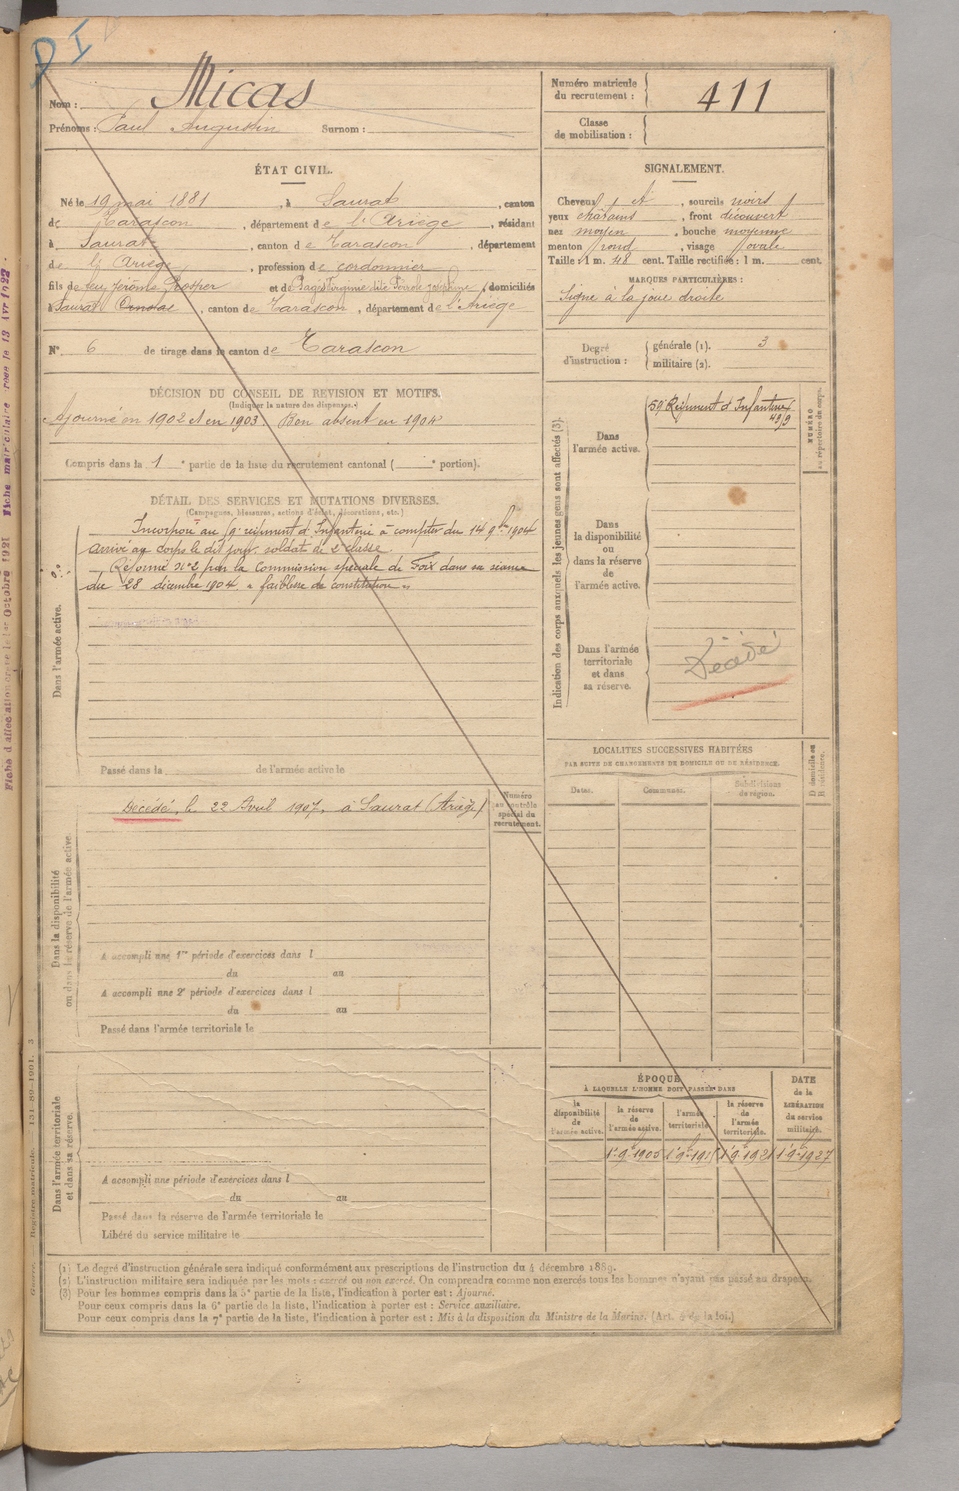 D I
Nom : Micas
Prénoms : Paul Augustin Surnom :
Numéro matricule du recrutement : 411
Classe de mobilisation :
ÉTAT CIVIL.
Né le 19 mai 1881, à Saurat, canton
de Tarascon, département de l'Ariège, résidant
à Saurat, canton de Tarascon, département
de l'Ariège, profession de cordonnier
fils de feu Jérôme Prosper et de Pagès Virginie dite Joséphine, domiciliés
à Saurat, canton de Tarascon, département de l'Ariège
N° 6 de tirage dans le canton de Tarascon
SIGNALEMENT.
Cheveux et, sourcils noirs
yeux châtains, front découvert
nez moyen, bouche moyenne
menton rond, visage ovale
Taille : 1 m. 48 cent. Taille rectifiée : 1 m. cent.
MARQUES PARTICULIÈRES :
Signe à la joue droite
Degré d'instruction : générale (1). 3
militaire (2).
DÉCISION DU CONSEIL DE REVISION ET MOTIFS.
(Indiquer la nature des dispenses.)
Ajourné en 1902 et en 1903. Bon absent en 1904
Compris dans la 1e partie de la liste du recrutement cantonal ( e portion).
DÉTAIL DES SERVICES ET MUTATIONS DIVERSES.
(Campagnes, blessures, actions d'éclat, décorations, etc.)
Dans l'armée active.
Incorporé au 59e régiment d'Infanterie à compter du 14 9bre 1904
arrivé au corps le dit jour. soldat de 2e classe.
Réformé n°2 par la Commission spéciale de Foix dans sa séance
du 28 décembre 1904, « faiblesse de constitution »
Passé dans la de l'armée active le
Indication des corps auxquels les jeunes gens sont affectés (3).
Dans l'armée active.
59e Régiment d'Infanterie
NUMÉRO au répertoire du corps.
Dans la disponibilité ou dans la réserve de l'armée active.
Dans l'armée territoriale et dans sa réserve.
Décédé
Dans la disponibilité ou dans la réserve de l'armée active.
Numéro au contrôle spécial du recrutement.
Décédé, le 22 Avril 1907, à Saurat (Ariège)
A accompli une 1re période d'exercices dans l
du au
A accompli une 2e période d'exercices dans l
du au
Passé dans l'armée territoriale le
LOCALITÉS SUCCESSIVES HABITÉES
PAR SUITE DE CHANGEMENTS DE DOMICILE OU DE RÉSIDENCE.
Dates. Communes. Subdivisions de région. D domicile ou R résidence.
Dans l'armée territoriale et dans sa réserve.
A accompli une période d'exercices dans l
du au
Passé dans la réserve de l'armée territoriale le
Libéré du service militaire le
ÉPOQUE
À LAQUELLE L'HOMME DOIT PASSER DANS
la disponibilité de l'armée active.
la réserve de l'armée active.
l'armée territoriale.
la réserve de l'armée territoriale.
DATE de la LIBÉRATION du service militaire.
1er 9bre 1905 1er 9bre 1921 1er 9bre 1927
(1) Le degré d'instruction générale sera indiqué conformément aux prescriptions de l'instruction du 4 décembre 1889.
(2) L'instruction militaire sera indiquée par les mots : exercé ou non exercé. On comprendra comme non exercés tous les hommes n'ayant pas passé au drapeau.
(3) Pour les hommes compris dans la 5e partie de la liste, l'indication à porter est : Ajourné.
Pour ceux compris dans la 6e partie de la liste, l'indication à porter est : Service auxiliaire.
Pour ceux compris dans la 7e partie de la liste, l'indication à porter est : Mis à la disposition du Ministre de la Marine. (Art. 4 de la loi.)
Guerre. — Registre matricule. 131-89-1901. 3